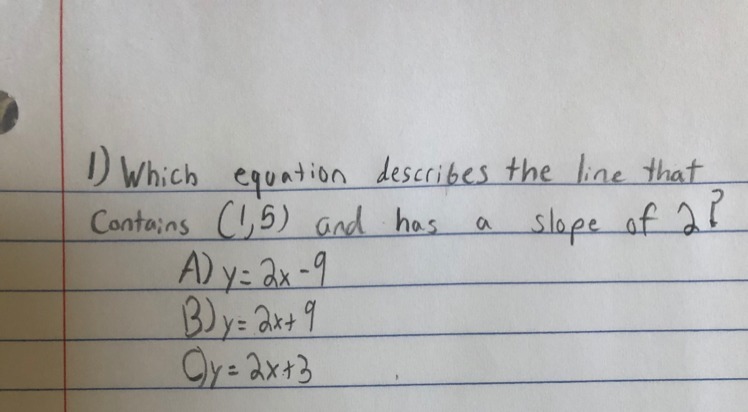 1) Which equation describes the line that
Contains (1,5) and has a slope of 2?
A) y = 2x - 9
B) y = 2x + 9
C) y = 2x + 3